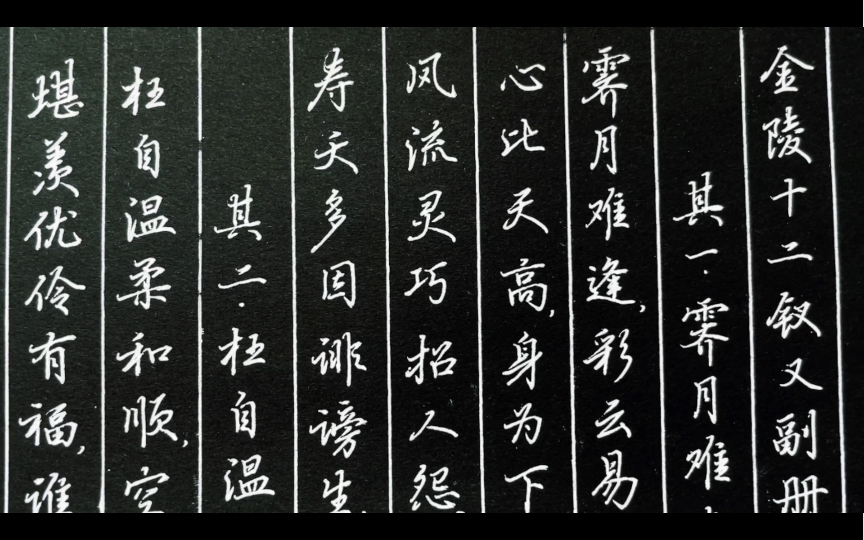 金陵十二钗又副册
其一·霁月难
霁月难逢,彩云易
心比天高,身为下
风流灵巧招人怨,
寿夭多因诽谤生,
其二·枉自温
枉自温柔和顺,空
堪羡优伶有福,谁